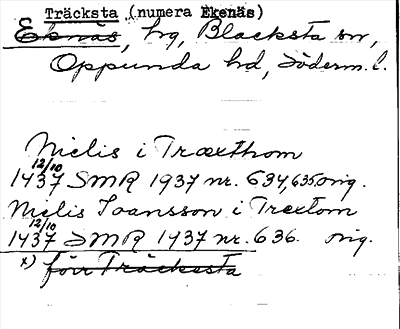 Träcksta (numera Ekenäs)
Ekenäs, hg, Blacksta sn,
Oppunda hd, Söderm. l.
Nielis i Træxthom
12/10
1437 SMR 1937 nr. 634,635 orig.
Nielis Joansson i Trextom
12/10
1437 SMR 1437 nr. 636. orig.
x) förr Träcksta